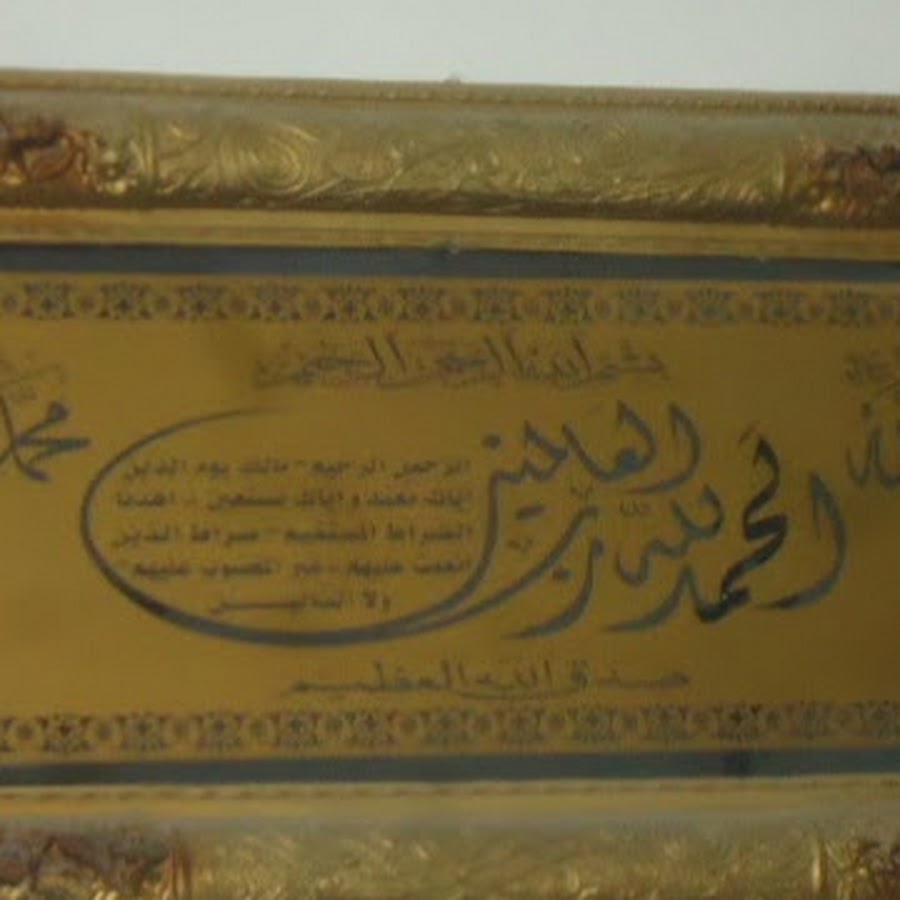 بسم الله الرحمن الرحيم
الحمد لله رب العالمين
الرحمن الرحيم - مالك يوم الدين
إياك نعبد وإياك نستعين - اهدنا
الصراط المستقيم - صراط الذين
أنعمت عليهم - غير المغضوب عليهم
ولا الضالين
صدق الله العظيم
محمد